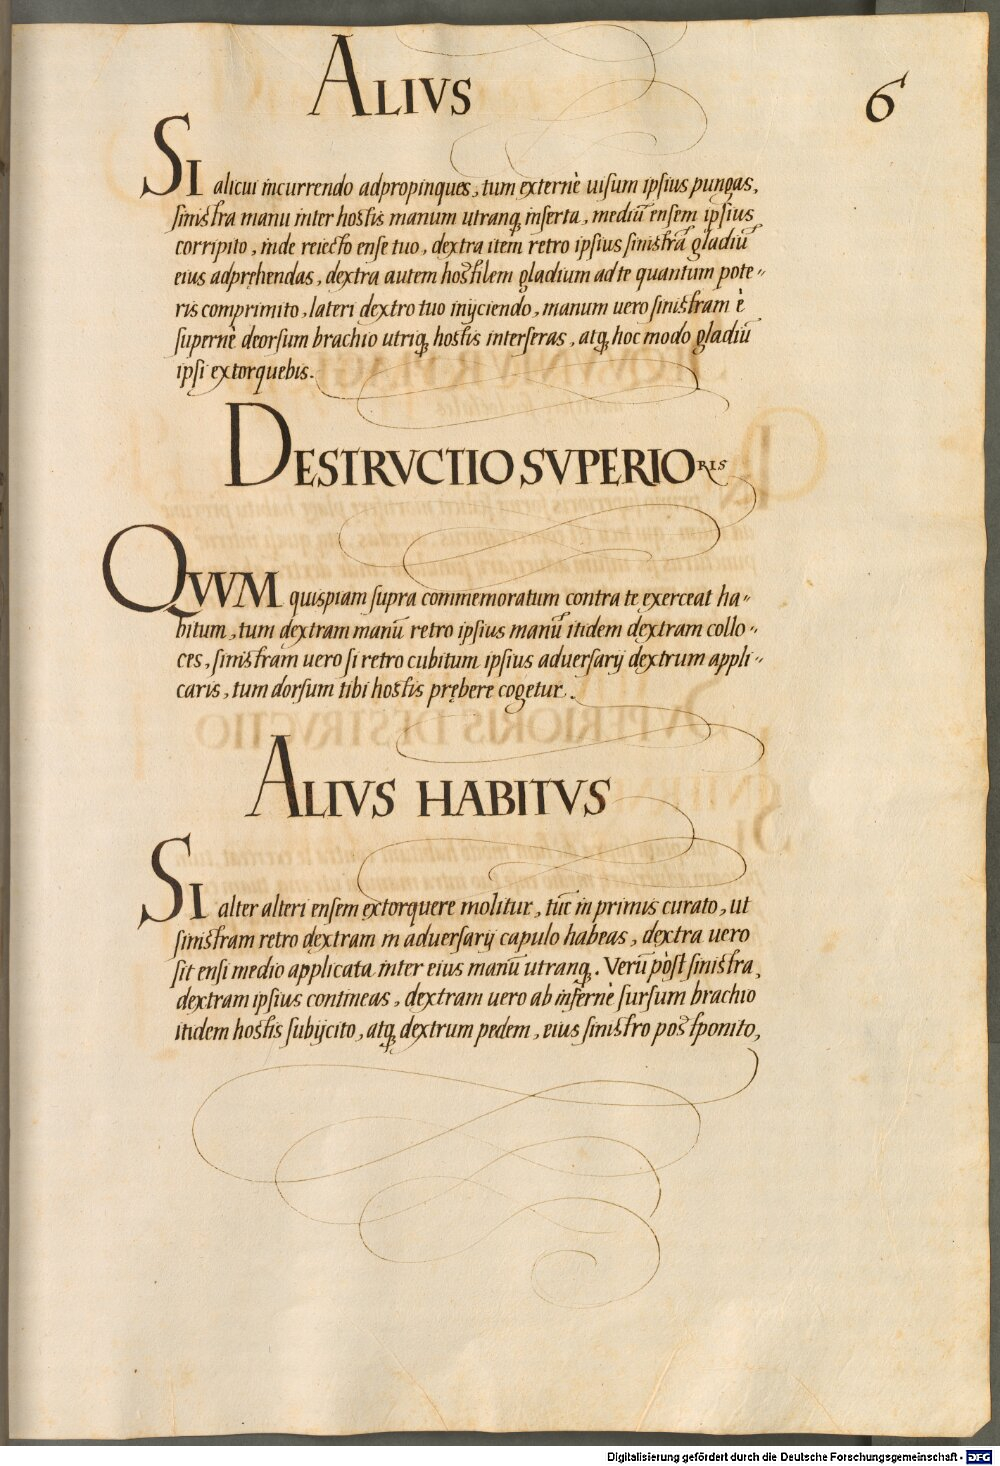 ALIVS
6
SI alicui incurrendo adpropinques, tum externè uisum ipsius pungas,
sinistra manu inter hostis manum utranq; inserta, mediũ ensem ipsius
corripito, inde reiecto ense tuo, dextra item retro ipsius sinistrã gladiũ
eius adprȩhendas, dextra autem hostilem gladium ad te quantum pote-
ris comprimito, lateri dextro tuo inijciendo, manum uero sinistram è
supernè deorsum brachio utriq; hostis interseras, atq; hoc modo gladiũ
ipsi extorquebis.
DESTRVCTIO SVPERIORIS
QVVM quispiam supra commemoratum contra te exerceat ha-
bitum, tum dextram manũ retro ipsius manũ itidem dextram collo-
ces, sinistram uero si retro cubitum ipsius aduersarij dextrum appli-
caris, tum dorsum tibi hostis prȩbere cogetur.
ALIVS HABITVS
SI alter alteri ensem extorquere molitur, tũc in primis curato, ut
sinistram retro dextram in aduersarij capulo habeas, dextra uero
sit ensi medio applicata inter eius manũ utranq;. Verũ pòst sinistra,
dextram ipsius contineas, dextram uero ab infernè sursum brachio
itidem hostis subijcito, atq; dextrum pedem, eius sinistro postponito,
Digitalisierung gefördert durch die Deutsche Forschungsgemeinschaft - DFG